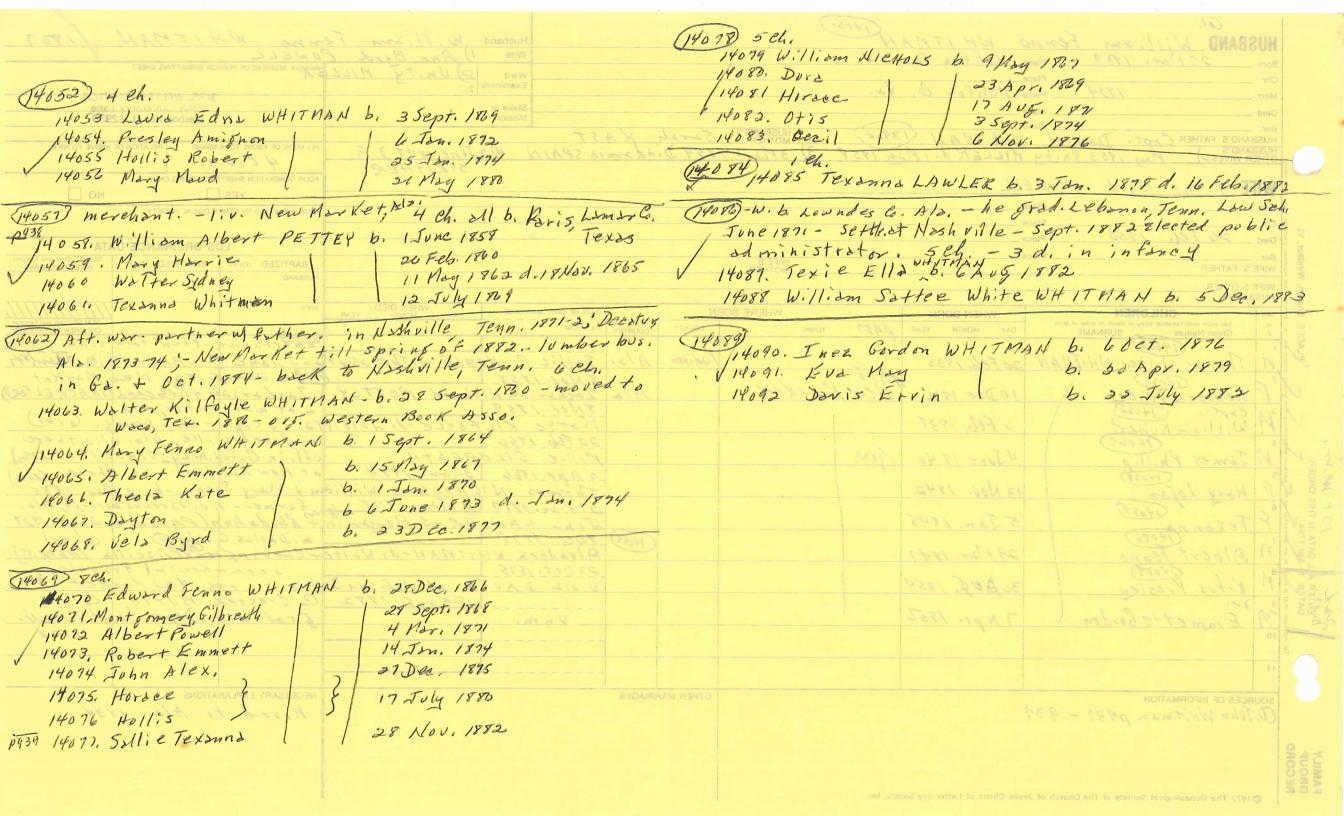 14052 4 ch.
14053 Laura Edna WHITMAN b. 3 Sept. 1869
14054. Presley Amignon 6 Jan. 1872
14055 Hollis Robert 25 Jan. 1874
14056 Mary Maud 21 May 1880
14057 merchant. - liv. New Market, Ala. 4 ch. all b. Paris, Lamar Co.
p938 14058. William Albert PETTEY b. 1 June 1858 Texas
14059. Mary Harrie 26 Feb. 1860
14060 Walter Sidney 11 May 1862 d. 18 Nov. 1865
14061. Texanna Whitman 12 July 1869
14062 Aft. war. partner w/ father. in Nashville Tenn. 1871-2; Decatur
Ala. 1873-74; - New Market till spring of 1882. - lumber bus.
in Ga. + Oct. 1884 - back to Nashville, Tenn. 6 ch.
14063. Walter Kilfoyle WHITMAN - b. 28 Sept. 1860 - moved to
Waco, Tex. 1886 - org. Western Book Asso.
14064. Mary Fenno WHITMAN b. 1 Sept. 1864
14065. Albert Emmett b. 15 May 1867
14066. Theola Kate b. 1 Jan. 1870
14067. Dayton b. 6 June 1873 d. Jan. 1874
14068. Vela Byrd b. 23 Dec. 1877
14069 8 ch.
14070 Edward Fenno WHITMAN b. 28 Dec. 1866
14071. Montgomery Gilbreath 28 Sept. 1868
14072 Albert Powell 4 Mar. 1871
14073. Robert Emmett 14 Jan. 1874
14074 John Alex. 27 Dec. 1875
14075. Horace 17 July 1880
14076 Hollis
p939 14077. Sallie Texanna 28 Nov. 1882
14078 5 ch.
14079 William NICHOLS b. 9 May 1867
14080. Dora 23 Apr. 1869
14081 Horace 17 Aug. 1871
14082. Otis 3 Sept. 1874
14083. Cecil 6 Nov. 1876
14084 1 ch.
14085 Texanna LAWLER b. 3 Jan. 1878 d. 16 Feb. 1882
14086 - w. b. Lowndes Co. Ala. - he grad. Lebanon, Tenn. Law Sch.
June 1871 - Settl. at Nashville - Sept. 1882 elected public
administrator. 5 ch - 3 d. in infancy
14087. Texie Ella WHITMAN b. 6 Aug 1882
14088 William Sattee White WHITMAN b. 5 Dec. 1883
14089
14090. Inez Gordon WHITMAN b. 6 Oct. 1876
14091. Eva May b. 20 Apr. 1879
14092 Davis Ervin b. 22 July 1882